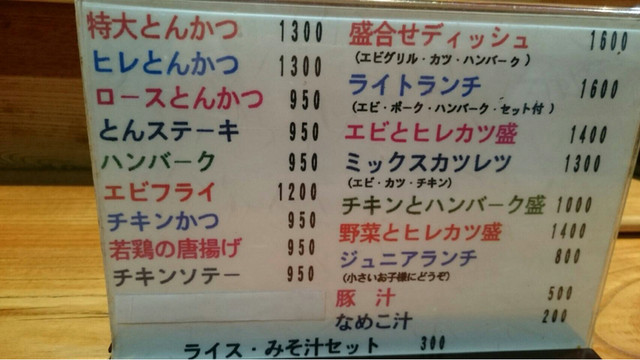 特大とんかつ 1300
ヒレとんかつ 1300
ロースとんかつ 950
とんステーキ 950
ハンバーク 950
エビフライ 1200
チキンかつ 950
若鶏の唐揚げ 950
チキンソテー 950
盛合せディッシュ 1600
(エビグリル・カツ・ハンバーク)
ライトランチ 1600
(エビ・ポーク・ハンバーク・セット付)
エビとヒレカツ盛 1400
ミックスカツレツ 1300
(エビ・カツ・チキン)
チキンとハンバーク盛 1000
野菜とヒレカツ盛 1400
ジュニアランチ 800
(小さいお子様にどうぞ)
豚汁 500
なめこ汁 200
ライス・みそ汁セット 300